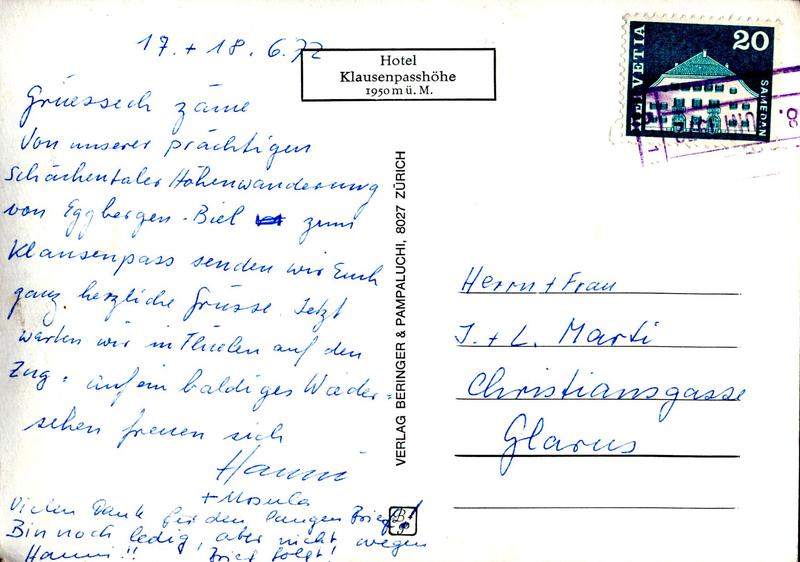 17. + 18. 6. 72
Hotel
Klausenpasshöhe
1950 m ü. M.
Grüessech zäme
Von unserer prächtigen
Schächentaler Höhenwanderung
von Eggbergen - Biel zum
Klausenpass senden wir Euch
ganz herzliche Grüsse. Jetzt
warten wir in Flüelen auf den
Zug. Auf ein baldiges Wieder-
sehen freuen sich
Hanni
+ Ursula
Vielen Dank für den langen Brief!
Bin noch ledig, aber nicht wegen
Hanni!! Brief folgt!
VERLAG BERINGER & PAMPALUCHI, 8027 ZÜRICH
HELVETIA
20
SAMEDAN
Herrn + Frau
J. + L. Marti
Christiansgasse
Glarus